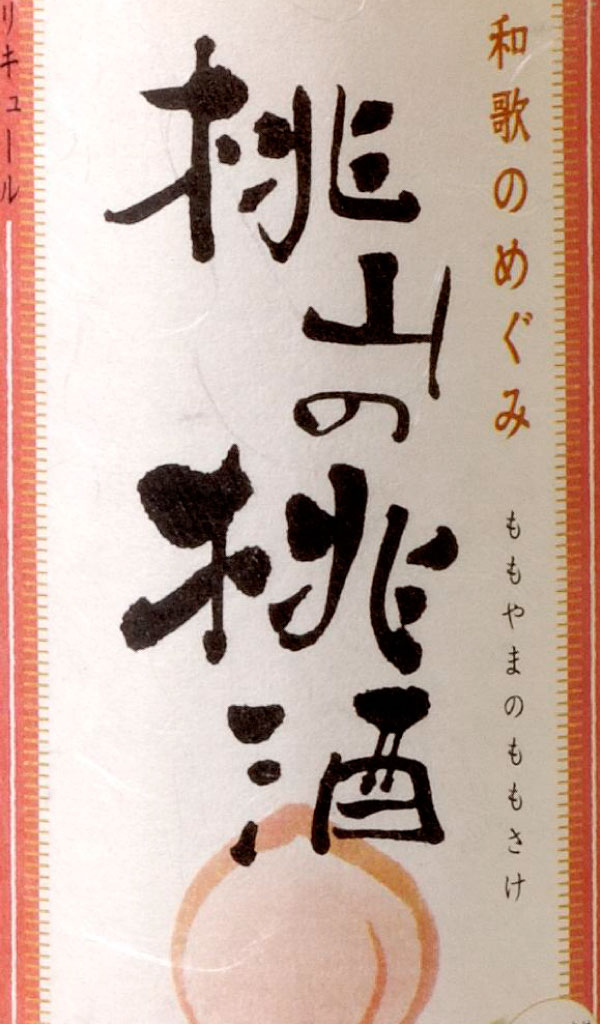 和歌のめぐみ
ももやまのももさけ
桃山の桃酒
リキュール